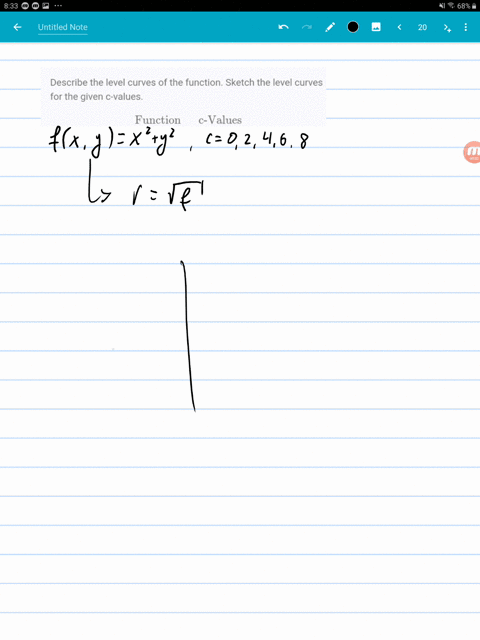 8:33 68%
Untitled Note 20
Describe the level curves of the function. Sketch the level curves
for the given c-values.
Function c-Values
f(x, y) = x²+y² , c=0, 2, 4, 6, 8
r = √f